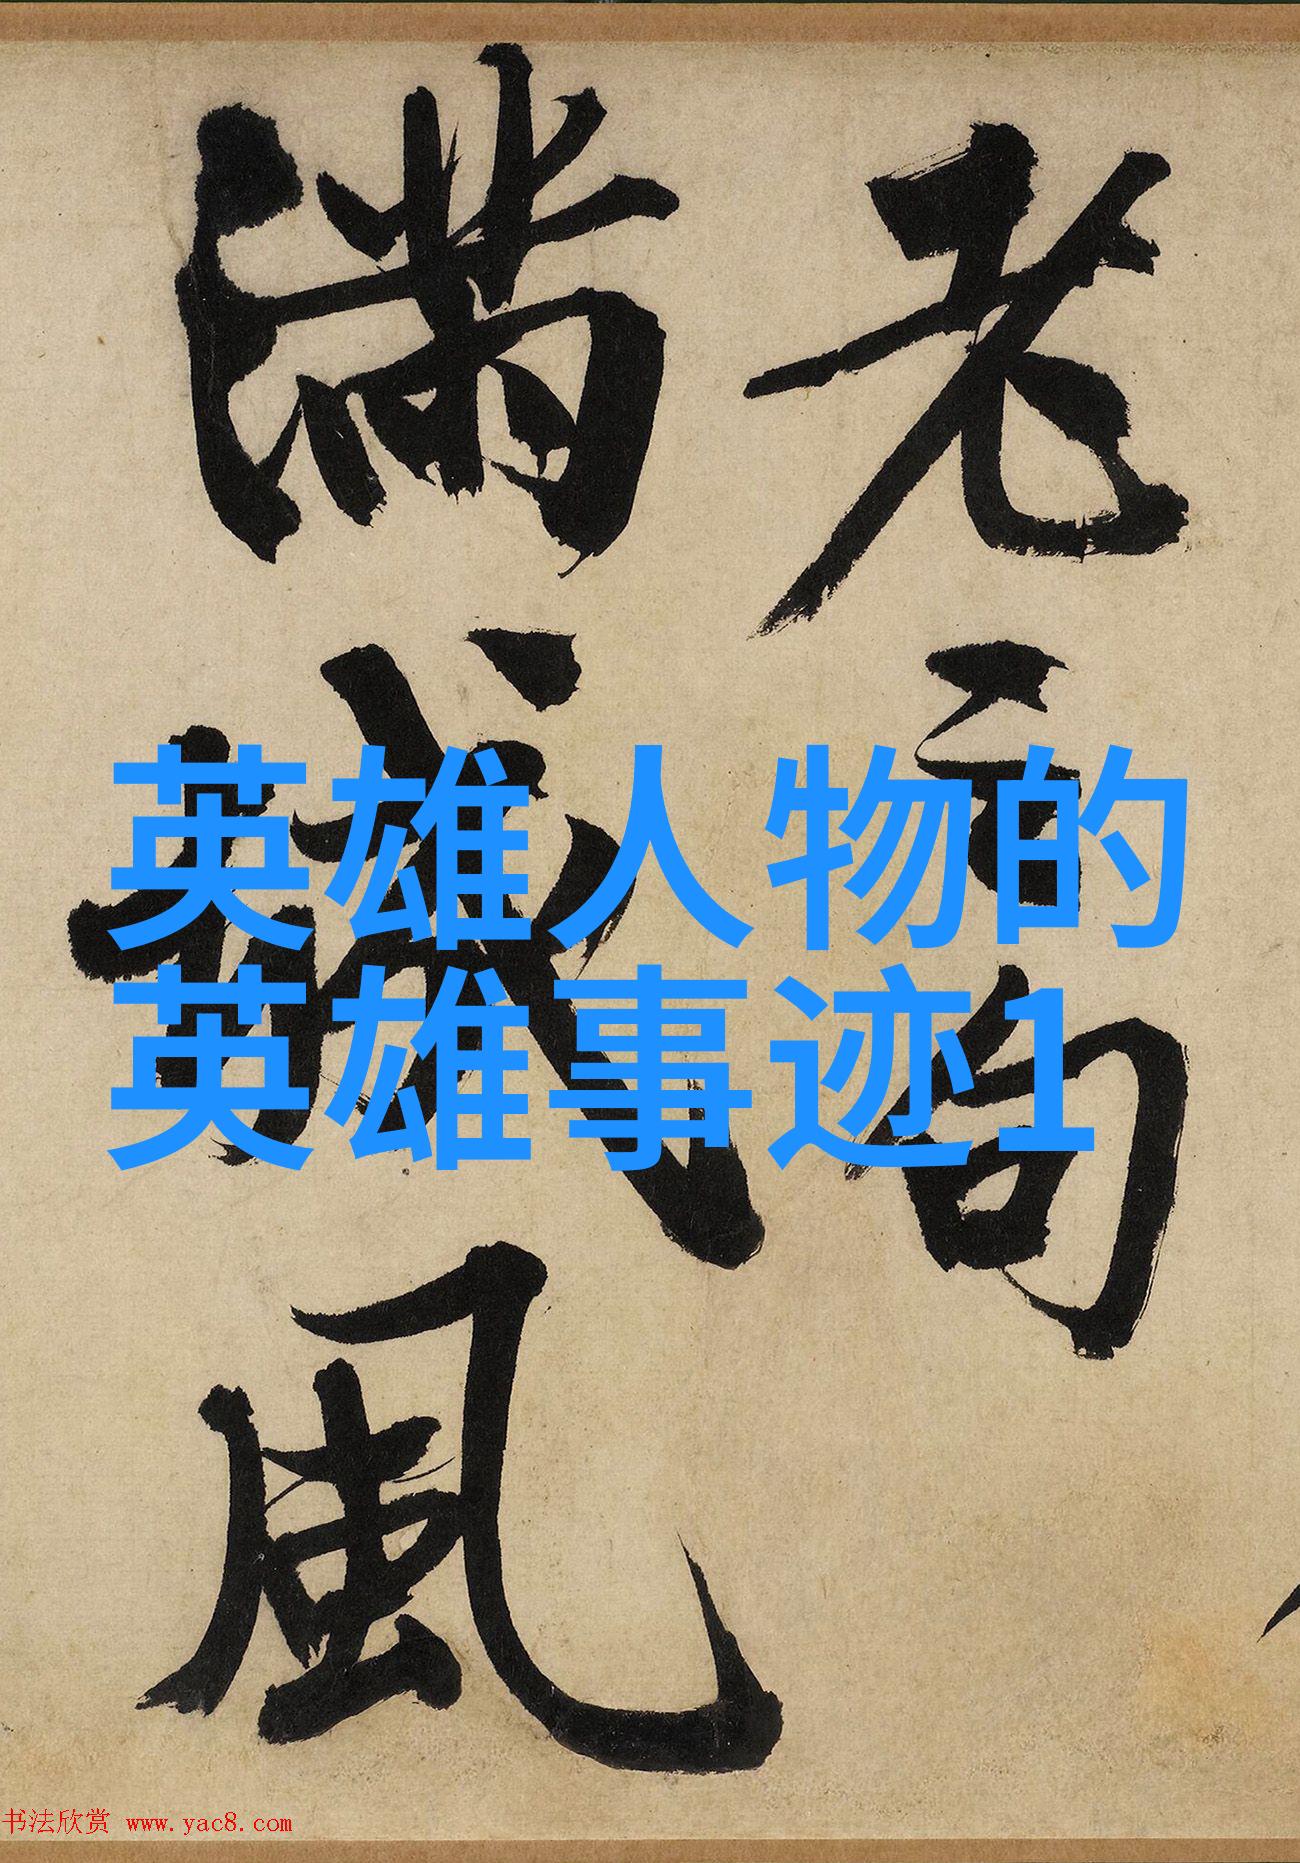 老句
滿城風
英雄人物的
英雄事迹1
书法欣赏 www.yac8.com